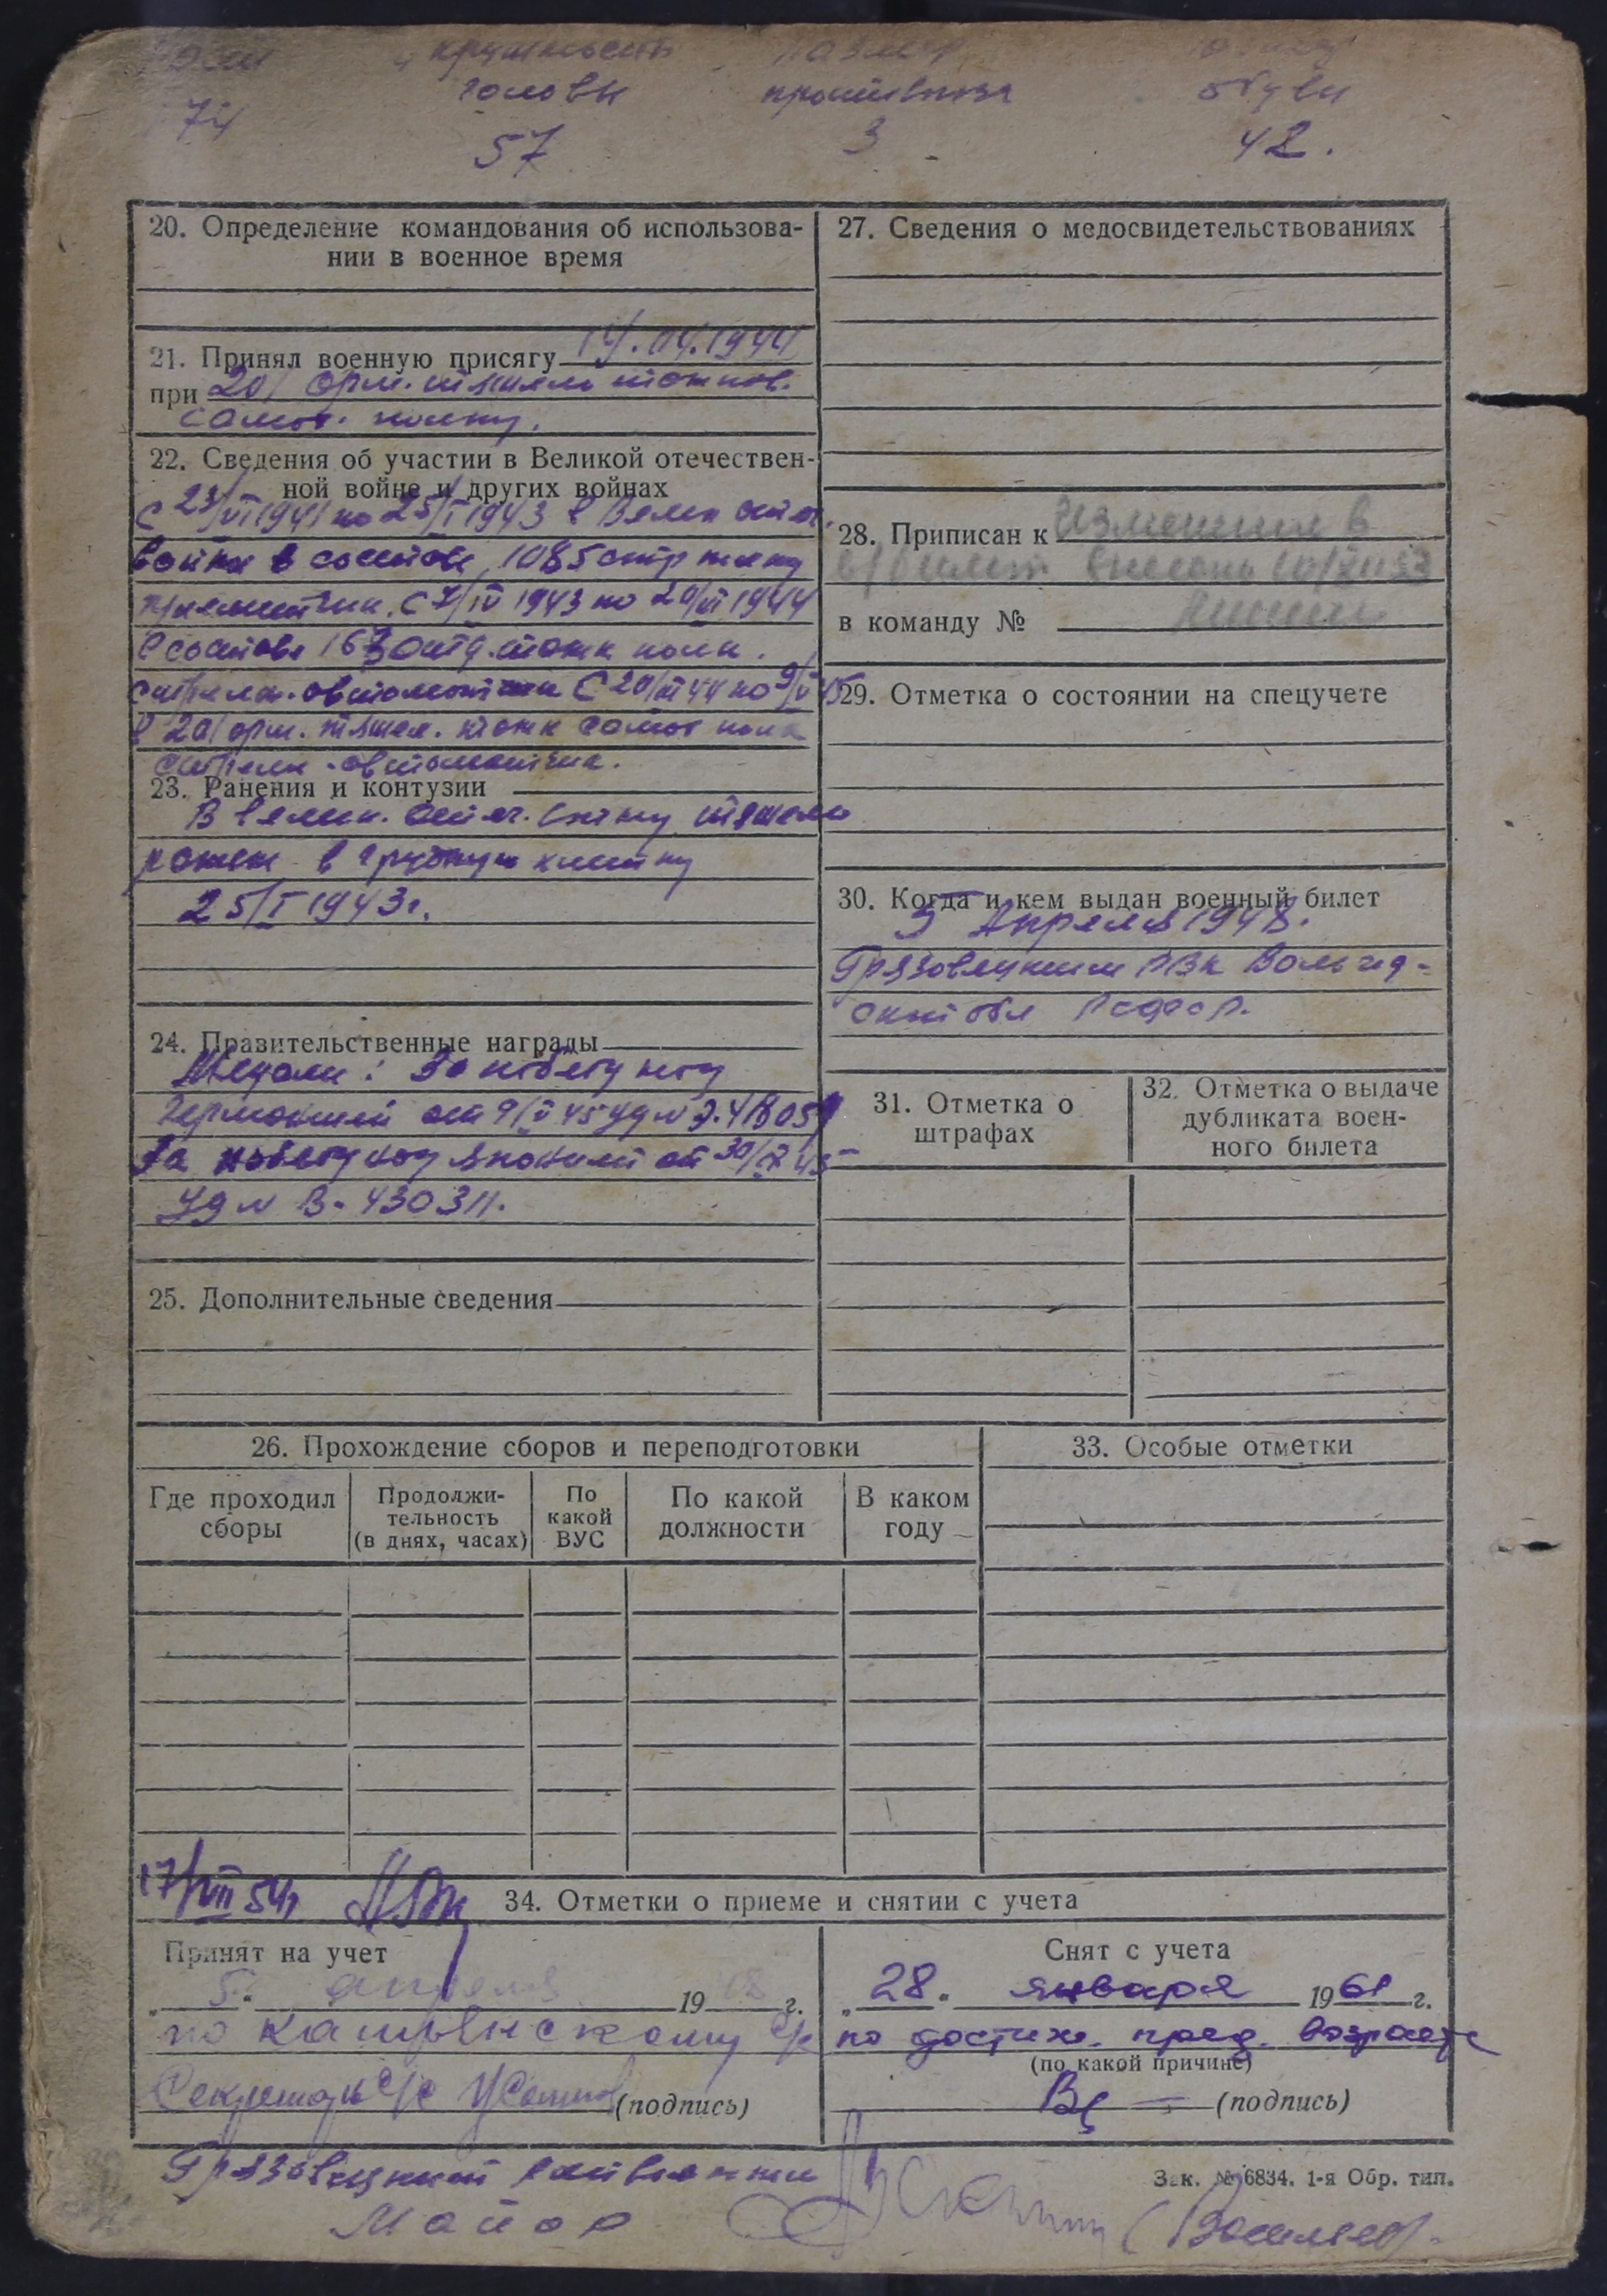 окружность
головы противогаза обуви
57 3 42.
20. Определение командования об использова-
нии в военное время
21. Принял военную присягу 14.04.1944
при 201 арм. тяжелом
самох. полку.
22. Сведения об участии в Великой отечествен-
ной войне и других войнах
С 23/VI 1941 по 25/I 1943 в Велик отеч.
войне в составе 1085 стр полку
С 7/IV 1943 по 20/VI 1944
в составе отд. танк полк.
стрелк. автоматчик С 20/VI 44 по 9/V 45
в 201 арм. тяжел. танк самох полк
стрелк - автоматчик.
23. Ранения и контузии
В велик. отеч. войну тяжело
ранен в грудную клетку
25/I 1943 г.
24. Правительственные награды
Медали: За победу над
Германией от 9/V 45 уд №
За победу над Японией от 30/IX 45
Уд № В-430311.
25. Дополнительные сведения
27. Сведения о медосвидетельствованиях
28. Приписан к Изменения в
в/билет внесены
в команду №
29. Отметка о состоянии на спецучете
30. Когда и кем выдан военный билет
5 Апреля 1948.
Грязовецким РВК Вологод-
ской обл РСФСР.
31. Отметка о
штрафах
32. Отметка о выдаче
дубликата воен-
ного билета
26. Прохождение сборов и переподготовки
Где проходил
сборы
Продолжи-
тельность
(в днях, часах)
По
какой
ВУС
По какой
должности
В каком
году
33. Особые отметки
17/VII 54 г
34. Отметки о приеме и снятии с учета
Принят на учет
„5“ апреля 1948 г.
по с/с
Секретарь с/с (подпись)
Снят с учета
„28“ января 1961 г.
по достиж. пред. возраста
(по какой причине)
(подпись)
Грязовецкий райвоенком
Майор
Зак. № 6834. 1-я Обр. тип.